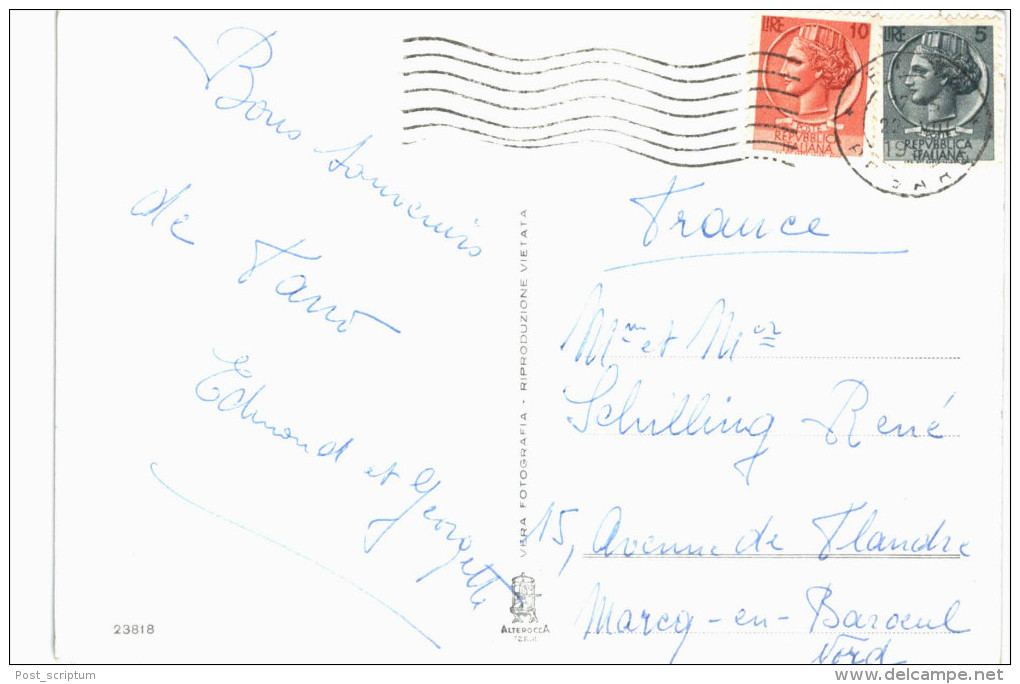 Bons souvenirs
de Fano
Edmond et Georgette
23818
VERA FOTOGRAFIA - RIPRODUZIONE VIETATA
ALTEROCCA
TERNI
LIRE 10
POSTE
REPVBBLICA
ITALIANA
LIRE 5
POSTE
REPVBBLICA
ITALIANA
France
Mm et Mr
Schilling René
15, Avenue de Flandre
Marcq-en-Baroeul
Nord
Post_scriptum
delcampe.net